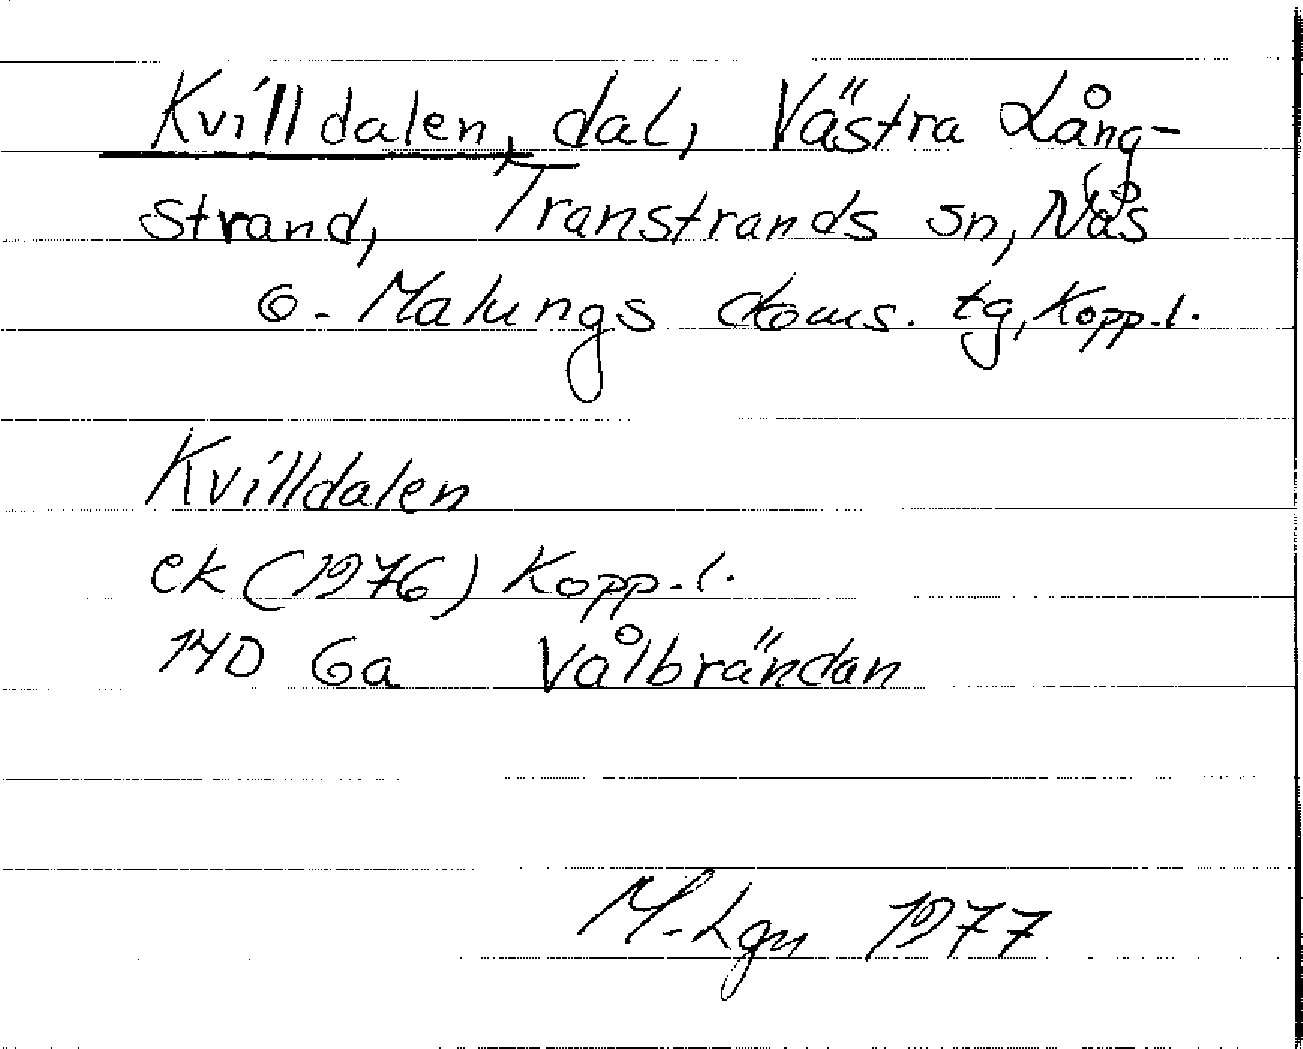 Kvilldalen, dal, Västra Lång-
strand, Transtrands sn, Nås
o. Malungs doms. tg, Kopp.l.
Kvilldalen
ek (1976) Kopp.l.
14D 6a Vålbrändan
M.Lgn 1977